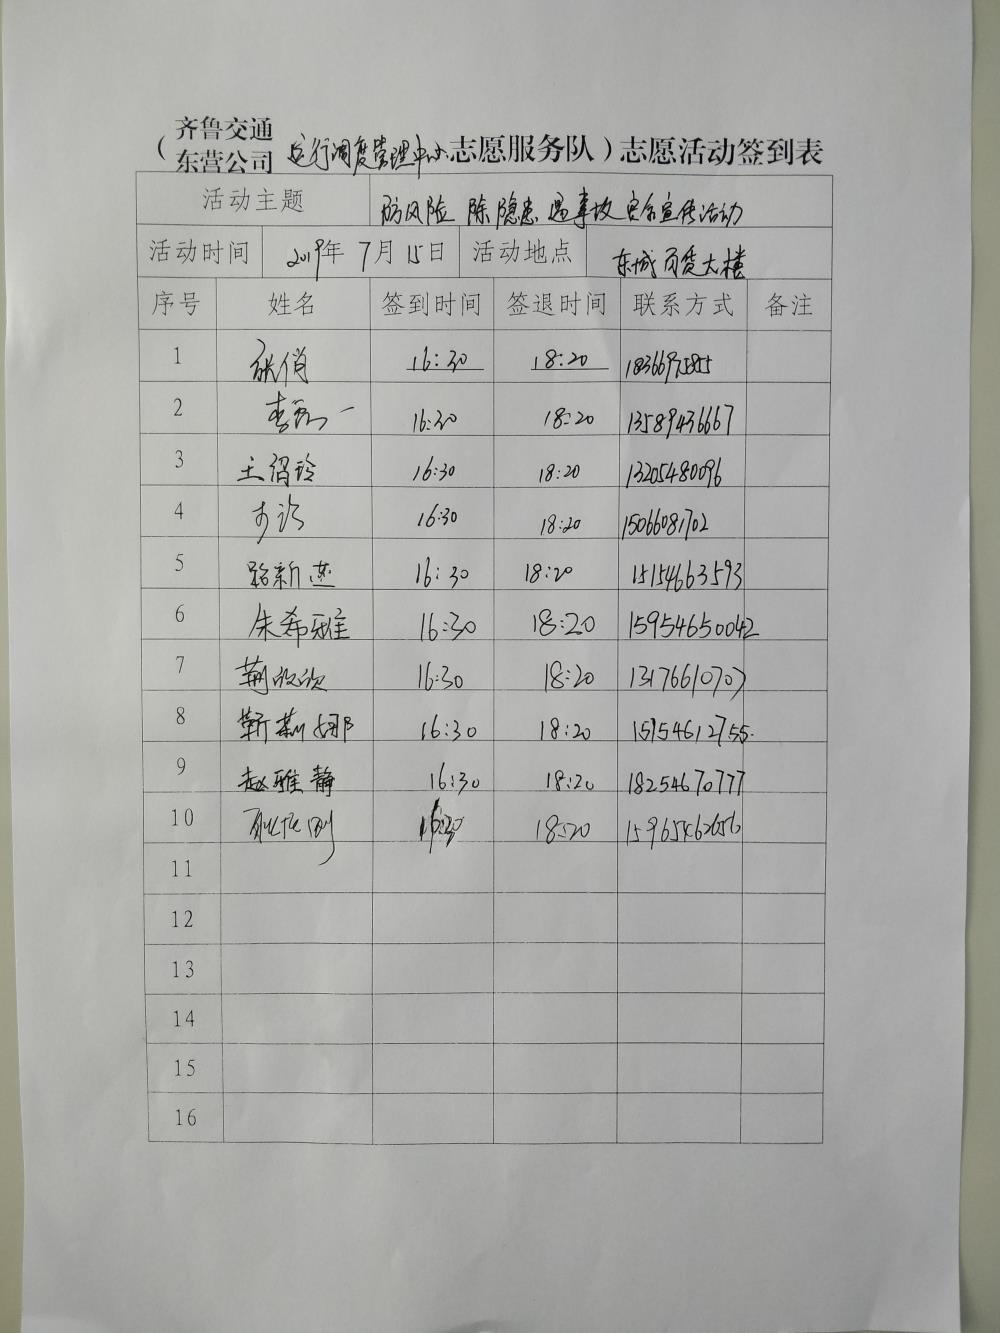 （齐鲁交通东营公司 运行调度管理中心志愿服务队）志愿活动签到表
活动主题 防风险 除隐患 遏事故 安全宣传活动
活动时间 2019年 7月 15日 活动地点 东城百货大楼
序号 姓名 签到时间 签退时间 联系方式 备注
1 张俏 16:30 18:20
2 李 一 16:30 18:20 13589436667
3 王绍玲 16:30 18:20 13205480096
4 16:30 18:20 15066081702
5 路新燕 16:30 18:20 15154663593
6 朱希雅 16:30 18:20 15954650042
7 荆欣欣 16:30 18:20 13176610707
8 靳莉娜 16:30 18:20 15154612755
9 赵雅静 16:30 18:20 18254670777
10 16:30 18:20 15965462656
11
12
13
14
15
16